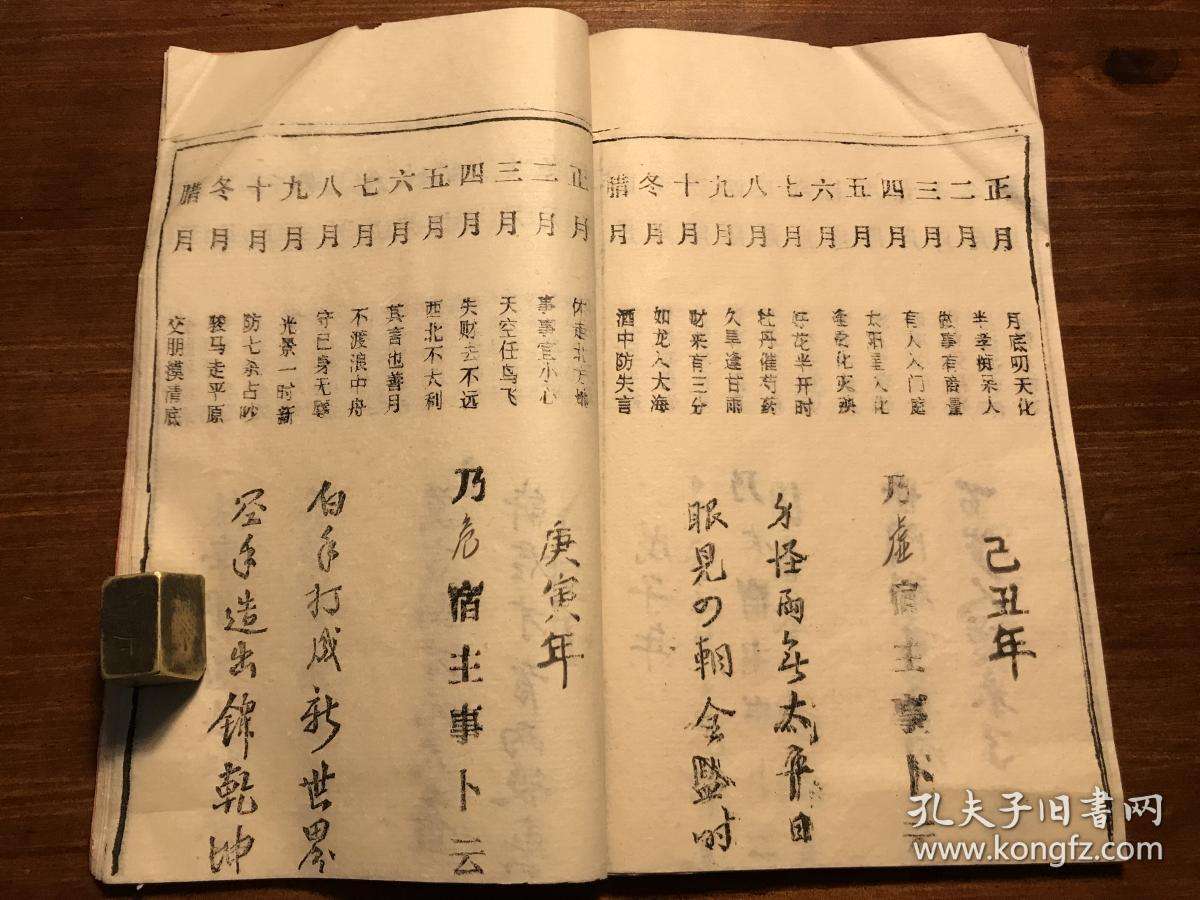 正月 月底叨天化
二月 半季痴呆人
三月 做事有商量
四月 有人入门庭
五月 太阳星入化
六月 逢凶化灾殃
七月 好花半开时
八月 牡丹催芍药
九月 久旱逢甘雨
十月 财来有三分
冬月 如龙入大海
腊月 酒中防失言
己丑年
乃虚宿主事卜云
怪雨 太平日
眼見の朝全盛时
正月
二月 事事宜小心
三月 天空任鸟飞
四月 失财去不远
五月 西北不大利
六月 其言也善月
七月 不渡浪中舟
八月 守己身无辱
九月 光景一时新
十月 防七杀占吵
冬月 骏马走平原
腊月 交朋摸清底
庚寅年
乃危宿主事卜云
白手打成新世界
空手造出锦乾坤
孔夫子旧书网
www.kongfz.com